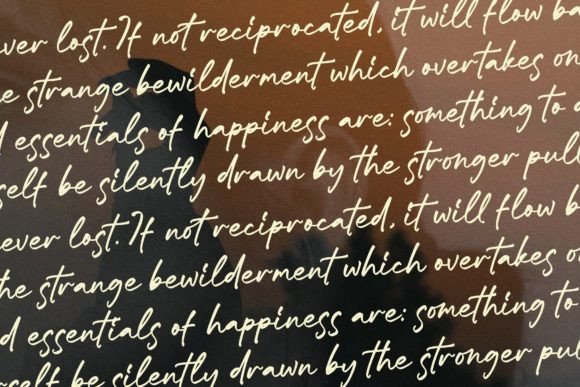 ever lost. If not reciprocated, it will flow ba
e strange bewilderment which overtakes on
d essentials of happiness are: something to
self be silently drawn by the stronger pull
ever lost. If not reciprocated, it will flow b
he strange bewilderment which overtakes o
d essentials of happiness are: something to
rself be silently drawn by the stronger pul